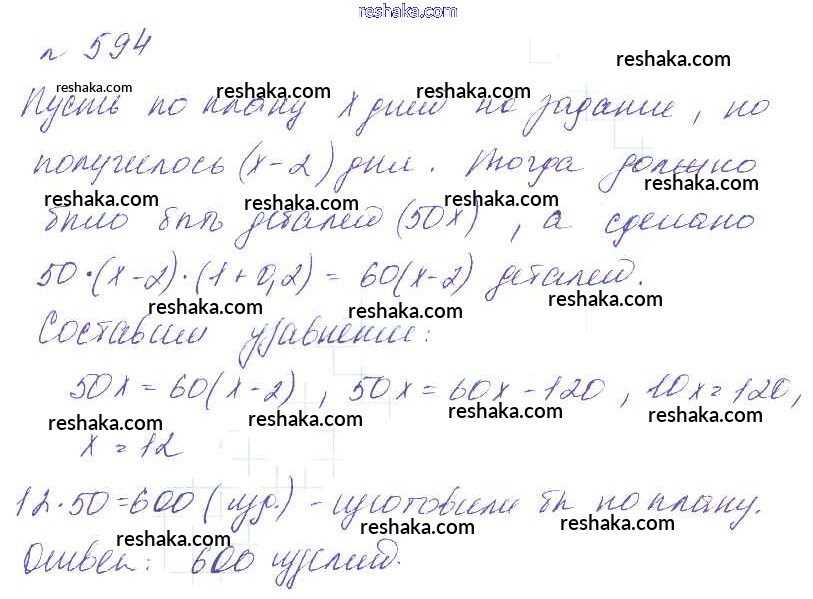 reshaka.com
n 594
reshaka.com
reshaka.com reshaka.com reshaka.com
Пусть по плану x дней на задание, но
получилось (x-2) дня. Тогда должно
reshaka.com reshaka.com reshaka.com reshaka.com
было быть деталей (50x), а сделано
50·(x-2)·(1+0,2) = 60(x-2) деталей.
reshaka.com reshaka.com reshaka.com
Составим уравнение:
50x = 60(x-2), 50x = 60x - 120, 10x = 120,
reshaka.com reshaka.com reshaka.com reshaka.com
x = 12
12·50=600 (изд.) - изготовили бы по плану.
reshaka.com reshaka.com reshaka.com
Ответ: 600 изделий.